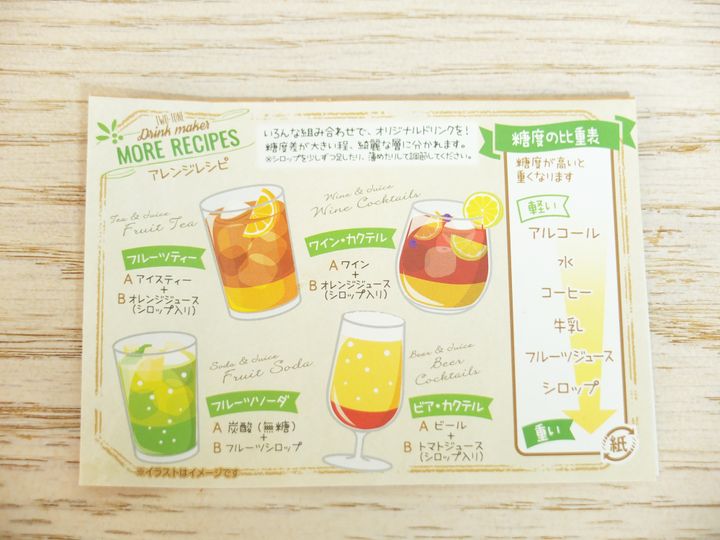 TWO-TONE
Drink maker
MORE RECIPES
アレンジレシピ
いろんな組み合わせで、オリジナルドリンクを!
糖度差が大きい程、綺麗な層に分かれます。
※シロップを少しずつ足したり、薄めたりして調節してください。
Tea & Juice
Fruit Tea
フルーツティー
A アイスティー
+
B オレンジジュース
(シロップ入り)
Wine & Juice
Wine Cocktails
ワイン・カクテル
A ワイン
+
B オレンジジュース
(シロップ入り)
Soda & Juice
Fruit Soda
フルーツソーダ
A 炭酸(無糖)
+
B フルーツシロップ
Beer & Juice
Beer
Cocktails
ビア・カクテル
A ビール
+
B トマトジュース
(シロップ入り)
※イラストはイメージです
糖度の比重表
糖度が高いと
重くなります
軽い
アルコール
水
コーヒー
牛乳
フルーツジュース
シロップ
重い
紙